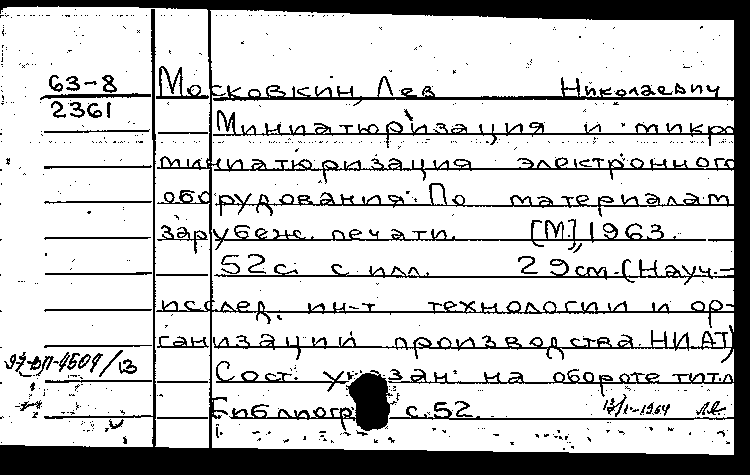 63-8
2361
Московкин, Лев Николаевич
Миниатюризация и микро
миниатюризация электронного
оборудования. По материалам
зарубеж. печати. [М], 1963.
52с. с илл. 29см. (Науч.-
исслед. ин-т технологии и ор-
ганизации производства НИАТ)
Сост. указан на обороте титл
Библиогр с. 52.